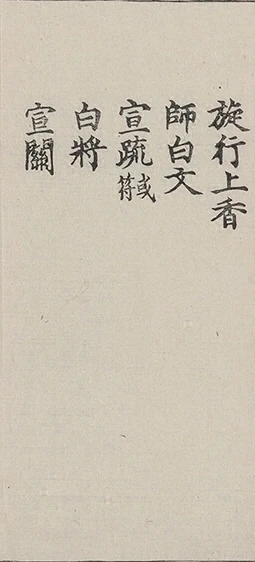 旋行上香
師白文
宣䟽或符
白將
宣關